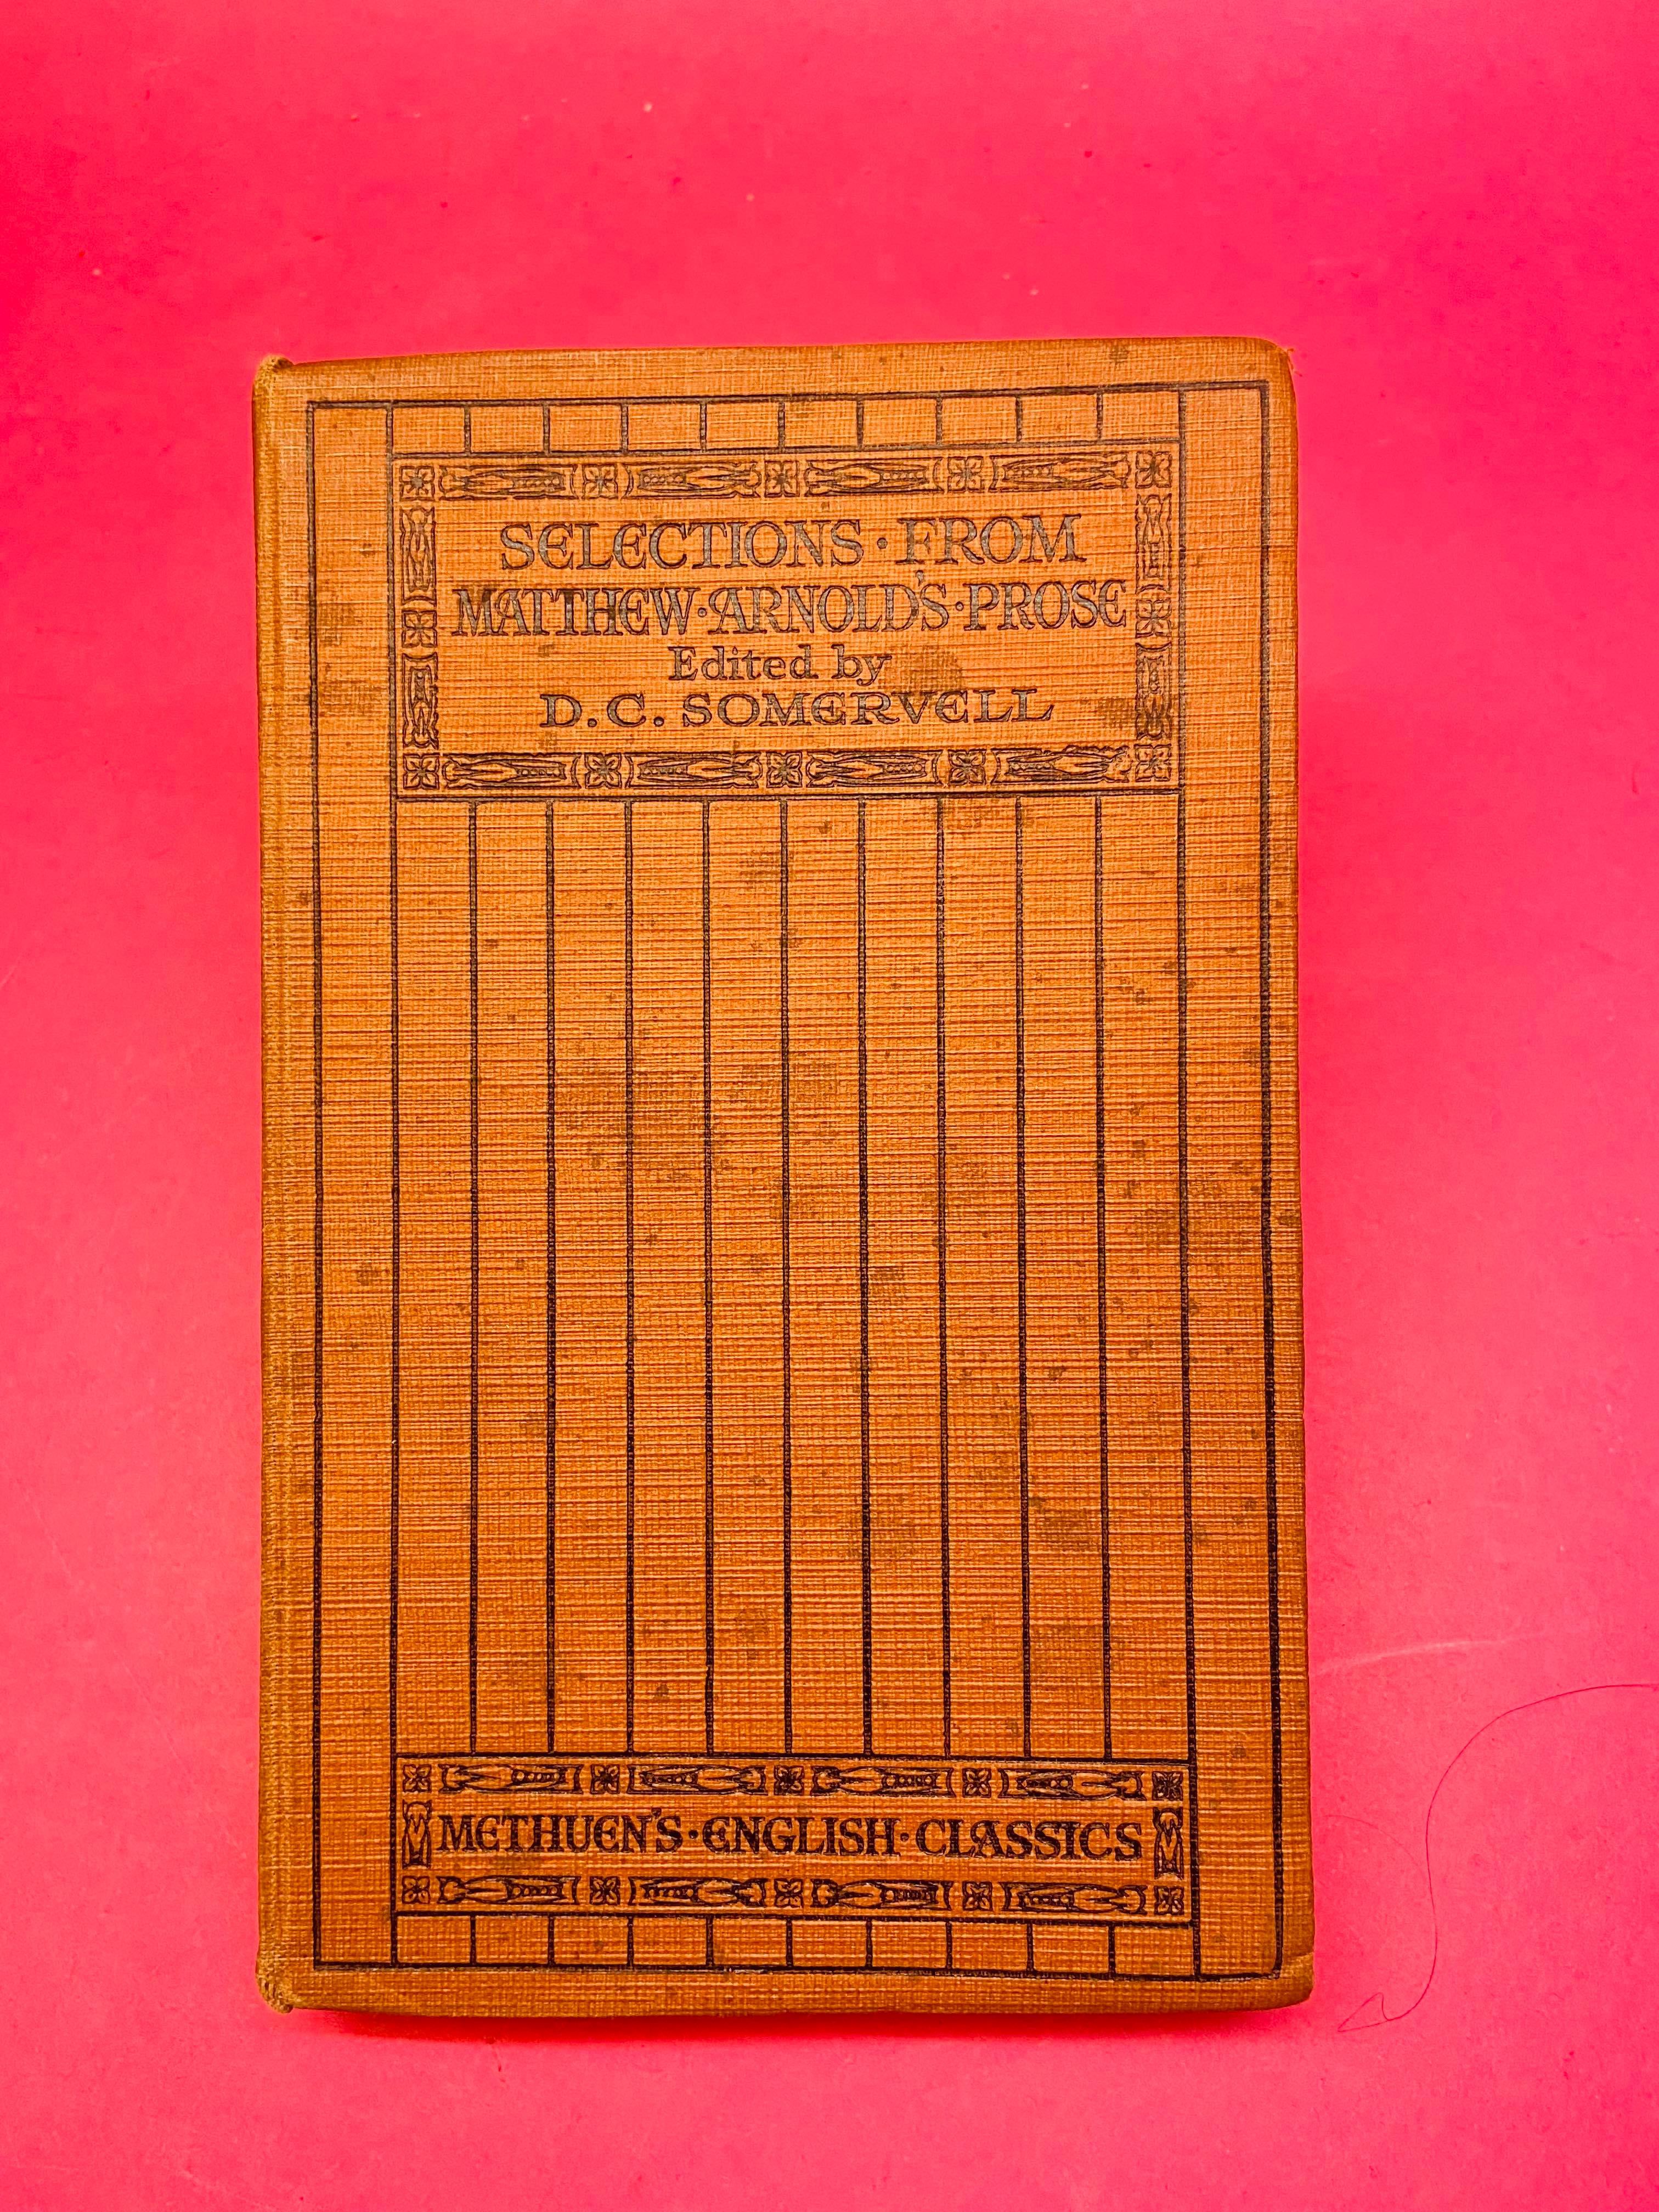 SELECTIONS·FROM
MATTHEW·ARNOLD'S·PROSE
Edited by
D.C. SOMERVELL
METHUEN'S·ENGLISH·CLASSICS